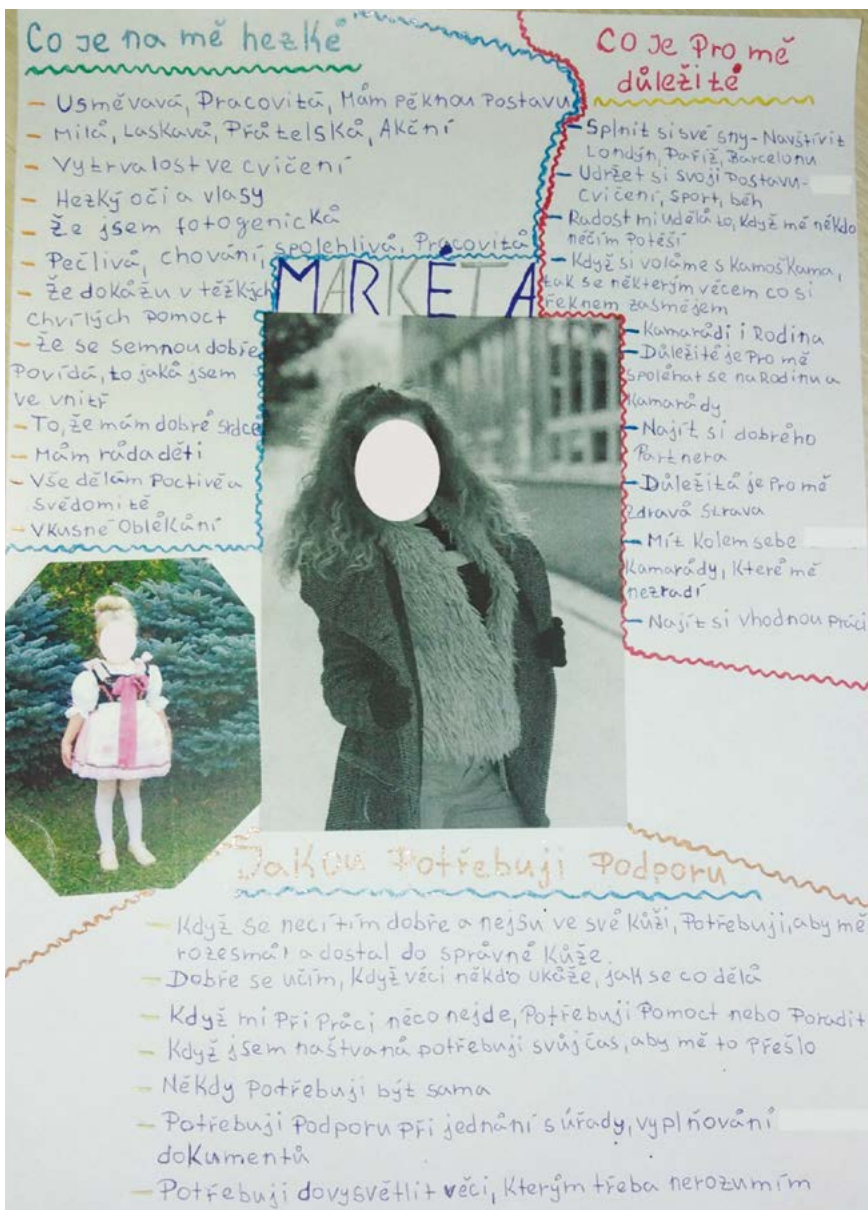 Co je na mě hezké
- Usměvavá, Pracovitá, Mám pěknou Postavu
- Milá, Laskavá, Přátelská, Akční
- Vytrvalost ve cvičení
- Hezký oči a vlasy
- Že jsem fotogenická
- Pečlivá, chování, spolehlivá, Pracovitá
- Že dokážu v těžkých
chvílých pomoct
- Že se semnou dobře
Povídá, to jaká jsem
ve vnitř
- To, že mám dobré srdce
- Mám ráda děti
- Vše dělám Poctivě a
svědomitě
- Vkusné Oblékání
MARKÉTA
Co Je Pro mě
důležité
- Splnit si své sny - Navštívit
Londýn, Paříž, Barcelonu
- Udržet si svoji Postavu -
Cvičení, Sport, běh
- Radost mi udělá to, Když mě někdo
něčím Potěší
- Když si voláme s Kamoškama,
tak se některým věcem co si
řeknem zasmějem
- Kamarádi i Rodina
- Důležité je Pro mě
spoléhat se na Rodinu a
Kamarády
- Najít si dobrého
Partnera
- Důležitá je Pro mě
zdravá strava
- Mít Kolem sebe
Kamarády, Které mě
nezradí
- Najít si vhodnou Práci
Jakou Potřebuji Podporu
- Když se necítím dobře a nejsu ve své Kůži, Potřebuji, aby mě
rozesmál a dostal do správné Kůže.
- Dobře se učím, Když věci někdo ukáže, jak se co dělá
- Když mi Při Práci něco nejde, Potřebuji Pomoct nebo Poradit
- Když jsem naštvaná potřebuji svůj čas, aby mě to Přešlo
- Někdy Potřebuji být sama
- Potřebuji Podporu při jednání s úřady, vyplňování
dokumentů
- Potřebuji dovysvětlit věci, Kterým třeba nerozumím